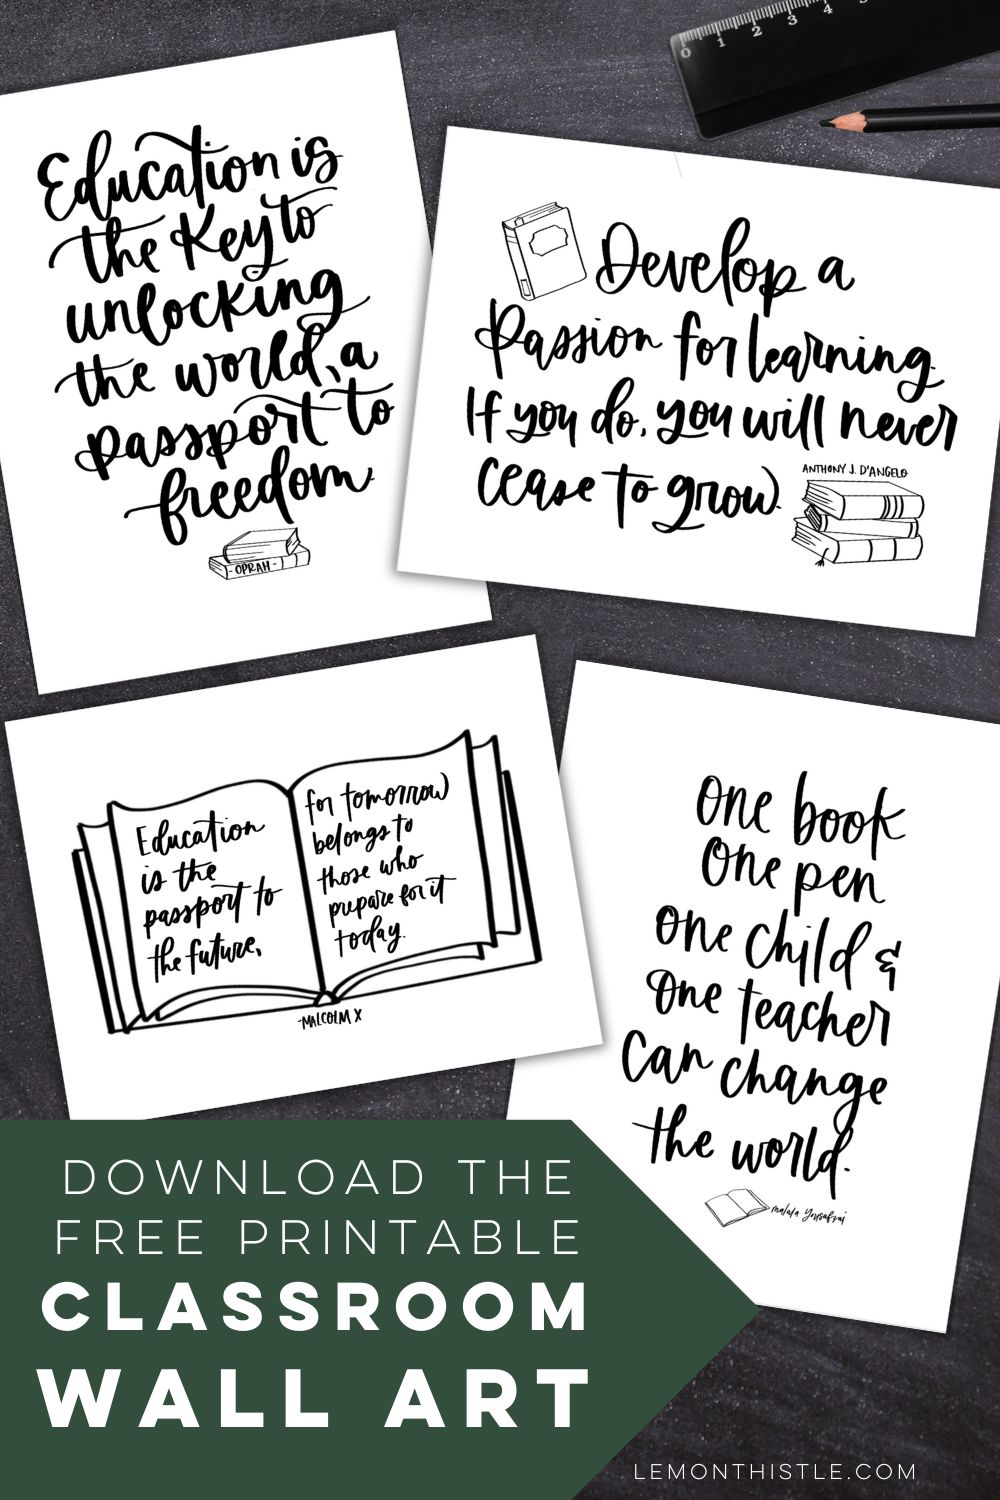 0 1 2 3 4
Education is
the key to
unlocking
the world, a
passport to
freedom.
-OPRAH-
Develop a
Passion for learning.
If you do, you will never
cease to grow.
ANTHONY J. D'ANGELO
Education
is the
passport to
the future,
for tomorrow
belongs to
those who
prepare for it
today.
-MALCOLM X
One book
One pen
One child &
One teacher
Can change
the world.
malala Yousafzai
DOWNLOAD THE
FREE PRINTABLE
CLASSROOM
WALL ART
LEMONTHISTLE.COM